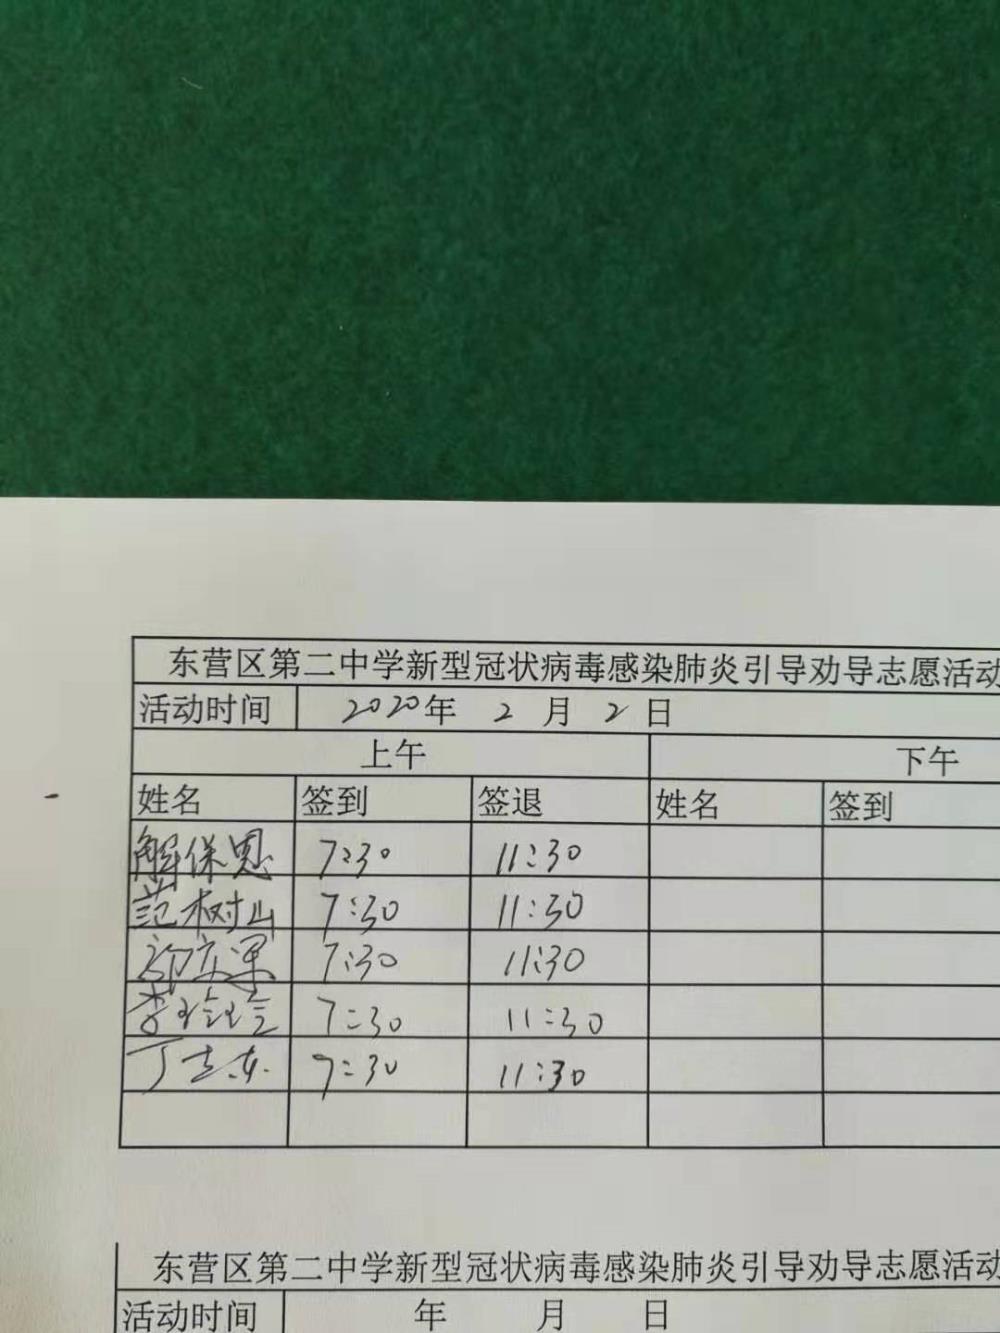 东营区第二中学新型冠状病毒感染肺炎引导劝导志愿活动
活动时间 2020年 2 月 2 日
上午 下午
姓名 签到 签退 姓名 签到
解保恩 7:30 11:30
范树山 7:30 11:30
7:30 11:30
李玲玲 7:30 11:30
丁志东 7:30 11:30
东营区第二中学新型冠状病毒感染肺炎引导劝导志愿活动
活动时间 年 月 日